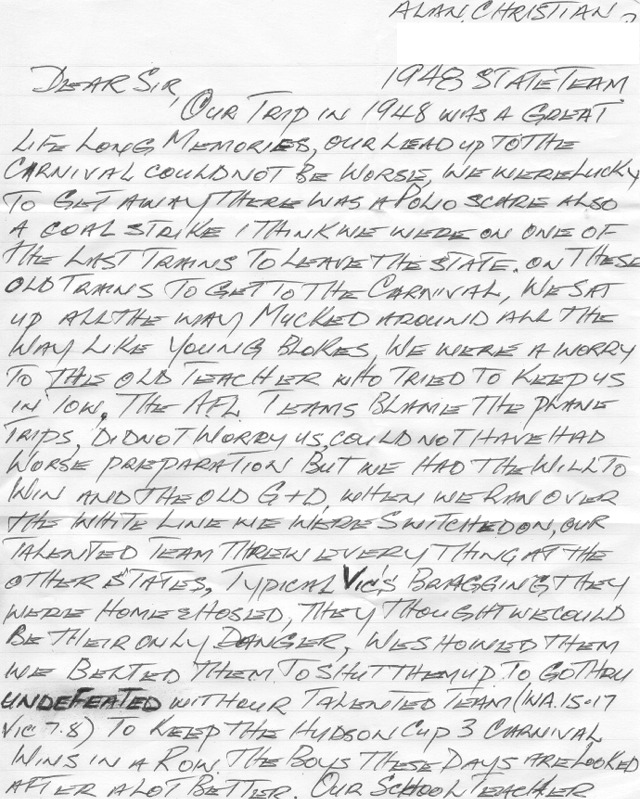 ALAN. CHRISTIAN
DEAR SIR, 1948 STATE TEAM
OUR TRIP IN 1948 WAS A GREAT
LIFE LONG MEMORIES, OUR LEAD UP TO THE
CARNIVAL COULD NOT BE WORSE, WE WERE LUCKY
TO GET AWAY THERE WAS A POLIO SCARE ALSO
A COAL STRIKE I THINK WE WERE ON ONE OF
THE LAST TRAINS TO LEAVE THE STATE. ON THESE
OLD TRAINS TO GET TO THE CARNIVAL, WE SAT
UP ALL THE WAY MUCKED AROUND ALL THE
WAY LIKE YOUNG BLOKES, WE WERE A WORRY
TO THE OLD TEACHER WHO TRIED TO KEEP US
IN TOW, THE AFL TEAMS BLAME THE PLANE
TRIPS, DID NOT WORRY US, COULD NOT HAVE HAD
WORSE PREPARATION BUT WE HAD THE WILL TO
WIN AND THE OLD G+D, WHEN WE RAN OVER
THE WHITE LINE WE WERE SWITCHED ON, OUR
TALENTED TEAM THREW EVERY THING AT THE
OTHER STATES, TYPICAL VIC'S BRAGGING THEY
WERE HOME & HOSED, THEY THOUGHT WE COULD
BE THEIR ONLY DANGER, WE SHOWED THEM
WE BELTED THEM TO SHUT THEM UP. TO GO THRU
UNDEFEATED WITH OUR TALENTED TEAM (WA. 15-17
VIC 7.8) TO KEEP THE HUDSON CUP 3 CARNIVAL
WINS IN A ROW. THE BOYS THESE DAYS ARE LOOKED
AFTER A LOT BETTER. OUR SCHOOL TEACHER